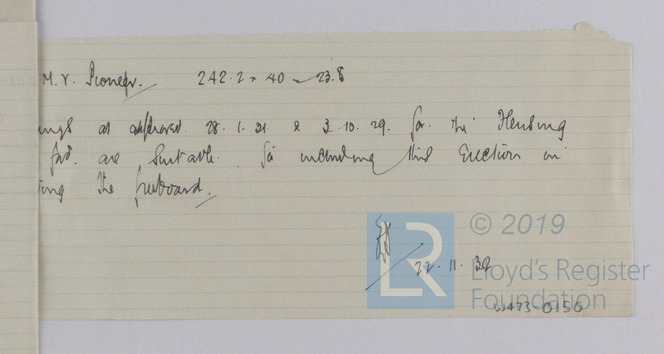 M.V. Pioneer. 242.2 × 40 – 23.8
ings as approved 28.1.31 & 3.10.29. for the Housing
fwd. are suitable for including this Erection in
ting the freeboard.
22.11.32
© 2019
LR
Lloyd's Register
Foundation
W473-0150